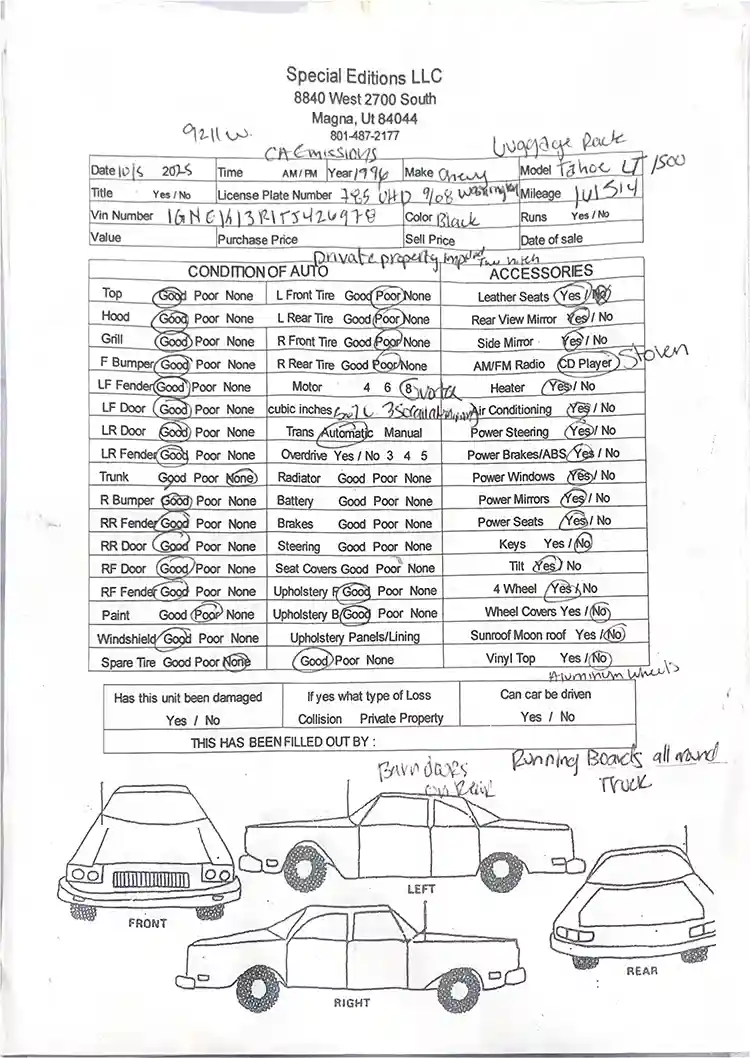 Special Editions LLC
8840 West 2700 South
Magna, Ut 84044
801-487-2177
9211 W.
CA Emissions
Luggage Rack
Date 10/5 2025 Time AM / PM Year 1996 Make Chevy Model Tahoe LT /1500
Title Yes / No License Plate Number 9/08 Washington Mileage
Vin Number Color Black Runs Yes / No
Value Purchase Price Sell Price Date of sale
Private property
CONDITION OF AUTO ACCESSORIES
Top Good Poor None L Front Tire Good Poor None Leather Seats Yes / No
Hood Good Poor None L Rear Tire Good Poor None Rear View Mirror Yes / No
Grill Good Poor None R Front Tire Good Poor None Side Mirror Yes / No
F Bumper Good Poor None R Rear Tire Good Poor None AM/FM Radio CD Player Stolen
LF Fender Good Poor None Motor 4 6 8 Heater Yes / No
LF Door Good Poor None cubic inches Air Conditioning Yes / No
LR Door Good Poor None Trans Automatic Manual Power Steering Yes / No
LR Fender Good Poor None Overdrive Yes / No 3 4 5 Power Brakes/ABS Yes / No
Trunk Good Poor None Radiator Good Poor None Power Windows Yes / No
R Bumper Good Poor None Battery Good Poor None Power Mirrors Yes / No
RR Fender Good Poor None Brakes Good Poor None Power Seats Yes / No
RR Door Good Poor None Steering Good Poor None Keys Yes / No
RF Door Good Poor None Seat Covers Good Poor None Tilt Yes / No
RF Fender Good Poor None Upholstery F Good Poor None 4 Wheel Yes / No
Paint Good Poor None Upholstery B Good Poor None Wheel Covers Yes / No
Windshield Good Poor None Upholstery Panels/Lining Sunroof Moon roof Yes / No
Spare Tire Good Poor None Good Poor None Vinyl Top Yes / No
Aluminum Wheels
Has this unit been damaged If yes what type of Loss Can car be driven
Yes / No Collision Private Property Yes / No
THIS HAS BEEN FILLED OUT BY :
Running Boards all around
Truck
Barn doors
on Rear
LEFT
FRONT
REAR
RIGHT